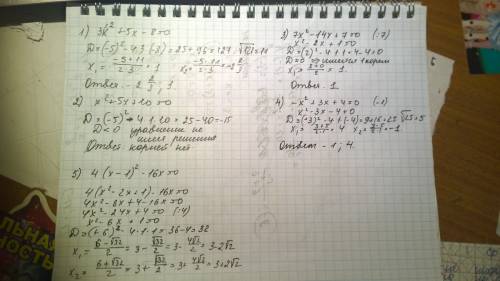 1) 3x² + 5x - 8 = 0
D = (-5)² - 4·3·(-8) = 25 + 96 = 121; √121 = 11
x₁ = (-5+11)/(2·3) = 1 x₂ = (-5-11)/(2·3) = -2 2/3
Ответ. -2 2/3; 1
2) x² + 5x + 20 = 0
D = (-5)² - 4·1·20 = 25 - 40 = -15
D < 0 уравнение не
имеет решения
Ответ. корней нет
3) 7x² - 14x + 7 = 0 (:7)
x² - 2x + 1 = 0
D = (2)² - 4·1·1 = 4 - 4 = 0
D = 0 => имеется 1 корень
x₁ = (2+0)/2 = 1
Ответ. 1
4) -x² + 3x + 4 = 0 (-1)
x² - 3x - 4 = 0
D = (-3)² - 4·1·(-4) = 9 + 16 = 25 √25 = 5
x₁ = (3+5)/(2·1) = 4 x₂ = (3-5)/(2·1) = -1
Ответ - 1; 4.
5) 4(x-1)² - 16x = 0
4(x² - 2x + 1) - 16x = 0
4x² - 8x + 4 - 16x = 0
4x² - 24x + 4 = 0 (:4)
x² - 6x + 1 = 0
D = (-6)² - 4·1·1 = 36 - 4 = 32
x₁ = (6-√32)/2 = 3 - √32/2 = 3 - 4√2/2 = 3 - 2√2
x₂ = (6+√32)/2 = 3 + √32/2 = 3 + 4√2/2 = 3 + 2√2